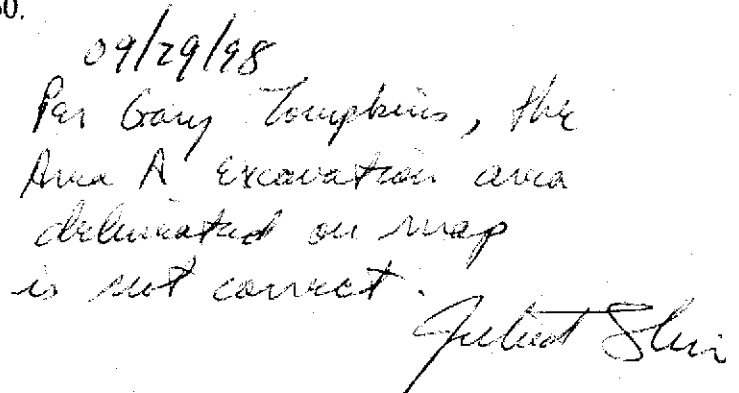 09/29/98
Per Gary Tompkins, the
Area A excavation area
delineated on map
is not correct.